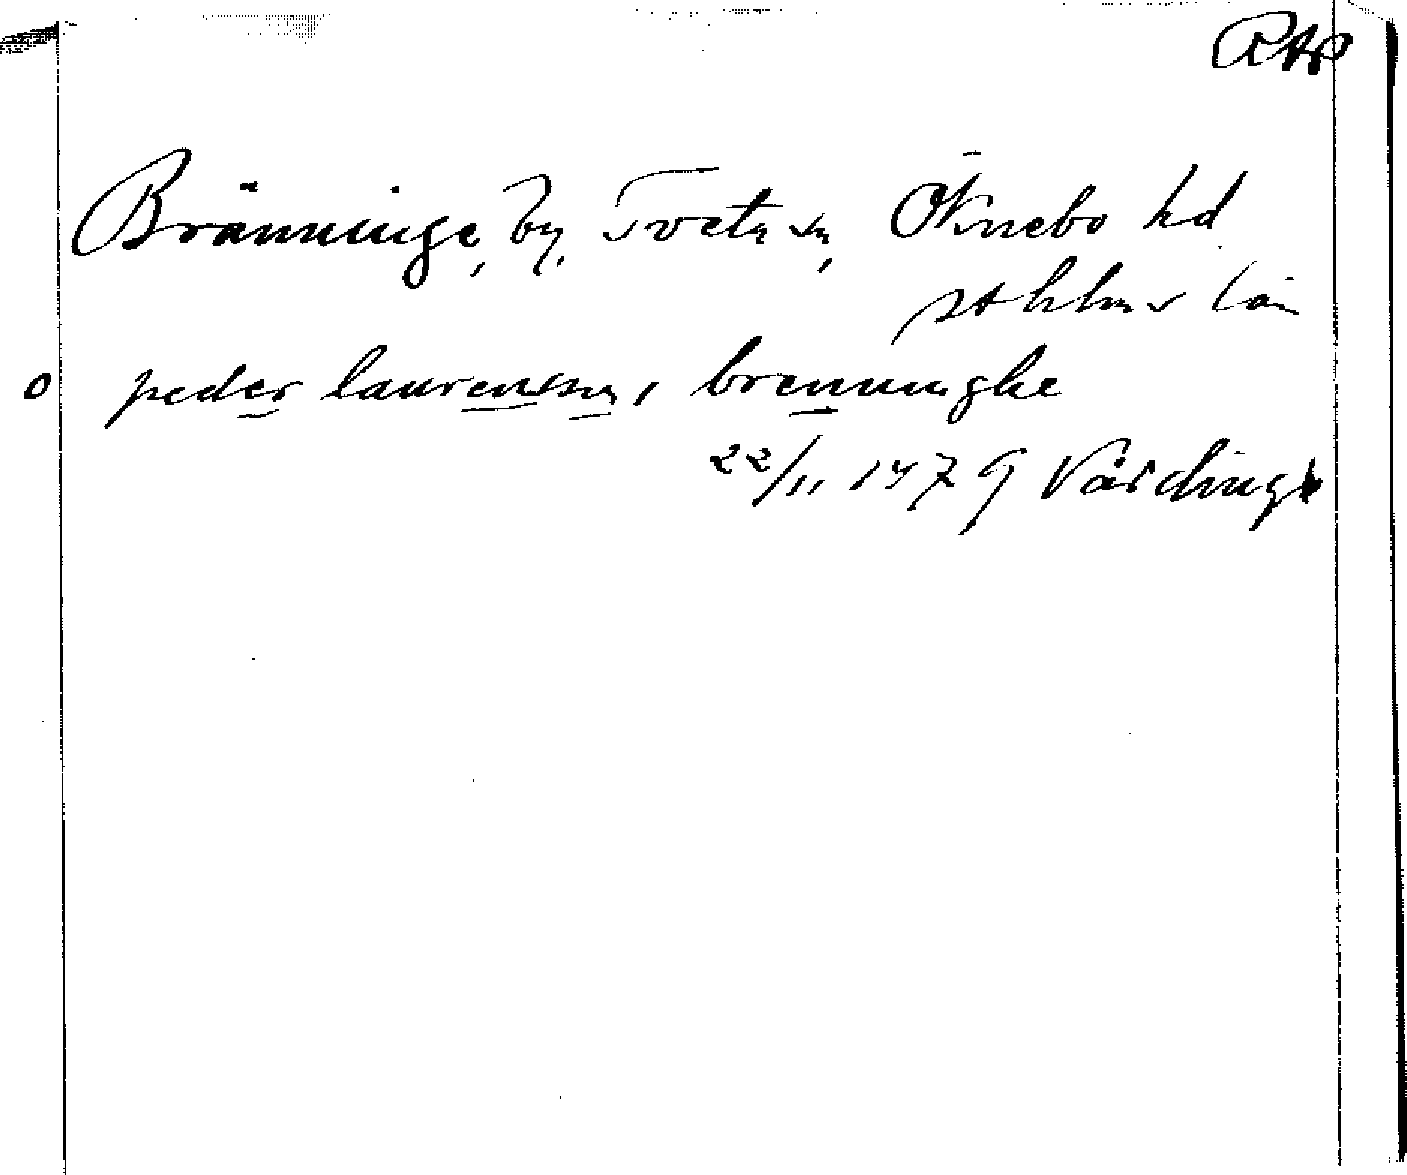 RAp
Bränninge, by, Tveta sn, Öknebo hd
sthlms län
o peder laurensson, i brenninghe
22/11 1479 Vårdinge